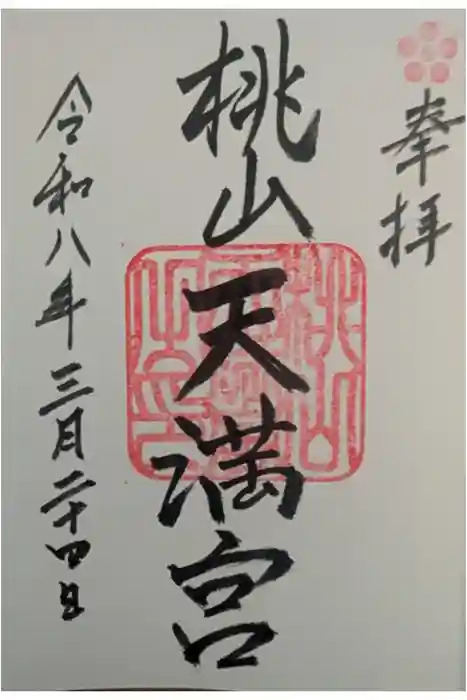 奉拝
桃山天満宮
令和八年三月二十四日